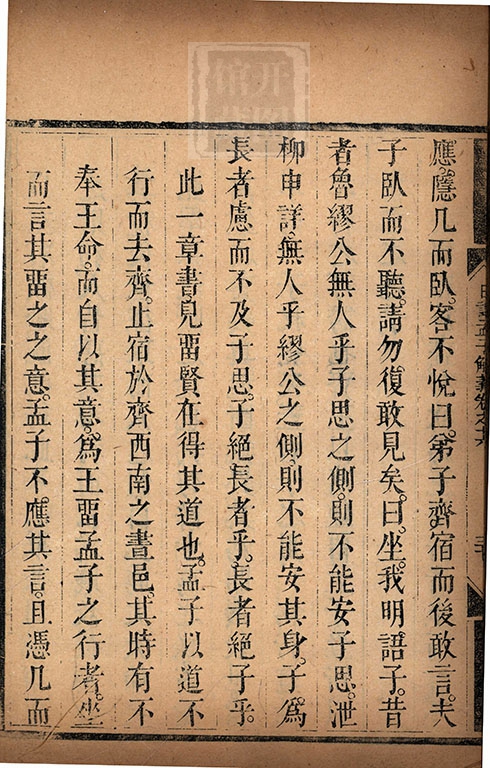 應隱几而臥。客不悅曰。弟子齊宿而後敢言。夫
子臥而不聽。請勿復敢見矣。曰。坐。我明語子。昔
者魯繆公無人乎子思之側。則不能安子思。泄
柳申詳。無人乎繆公之側。則不能安其身。子為
長者慮而不及子思。子絕長者乎。長者絕子乎。
此一章書。見畱賢在得其道也。孟子以道不
行而去齊。止宿於齊西南之晝邑。其時有不
奉王命。而自以其意。為王畱孟子之行者。坐
而言其畱之之意。孟子不應其言。且憑几而